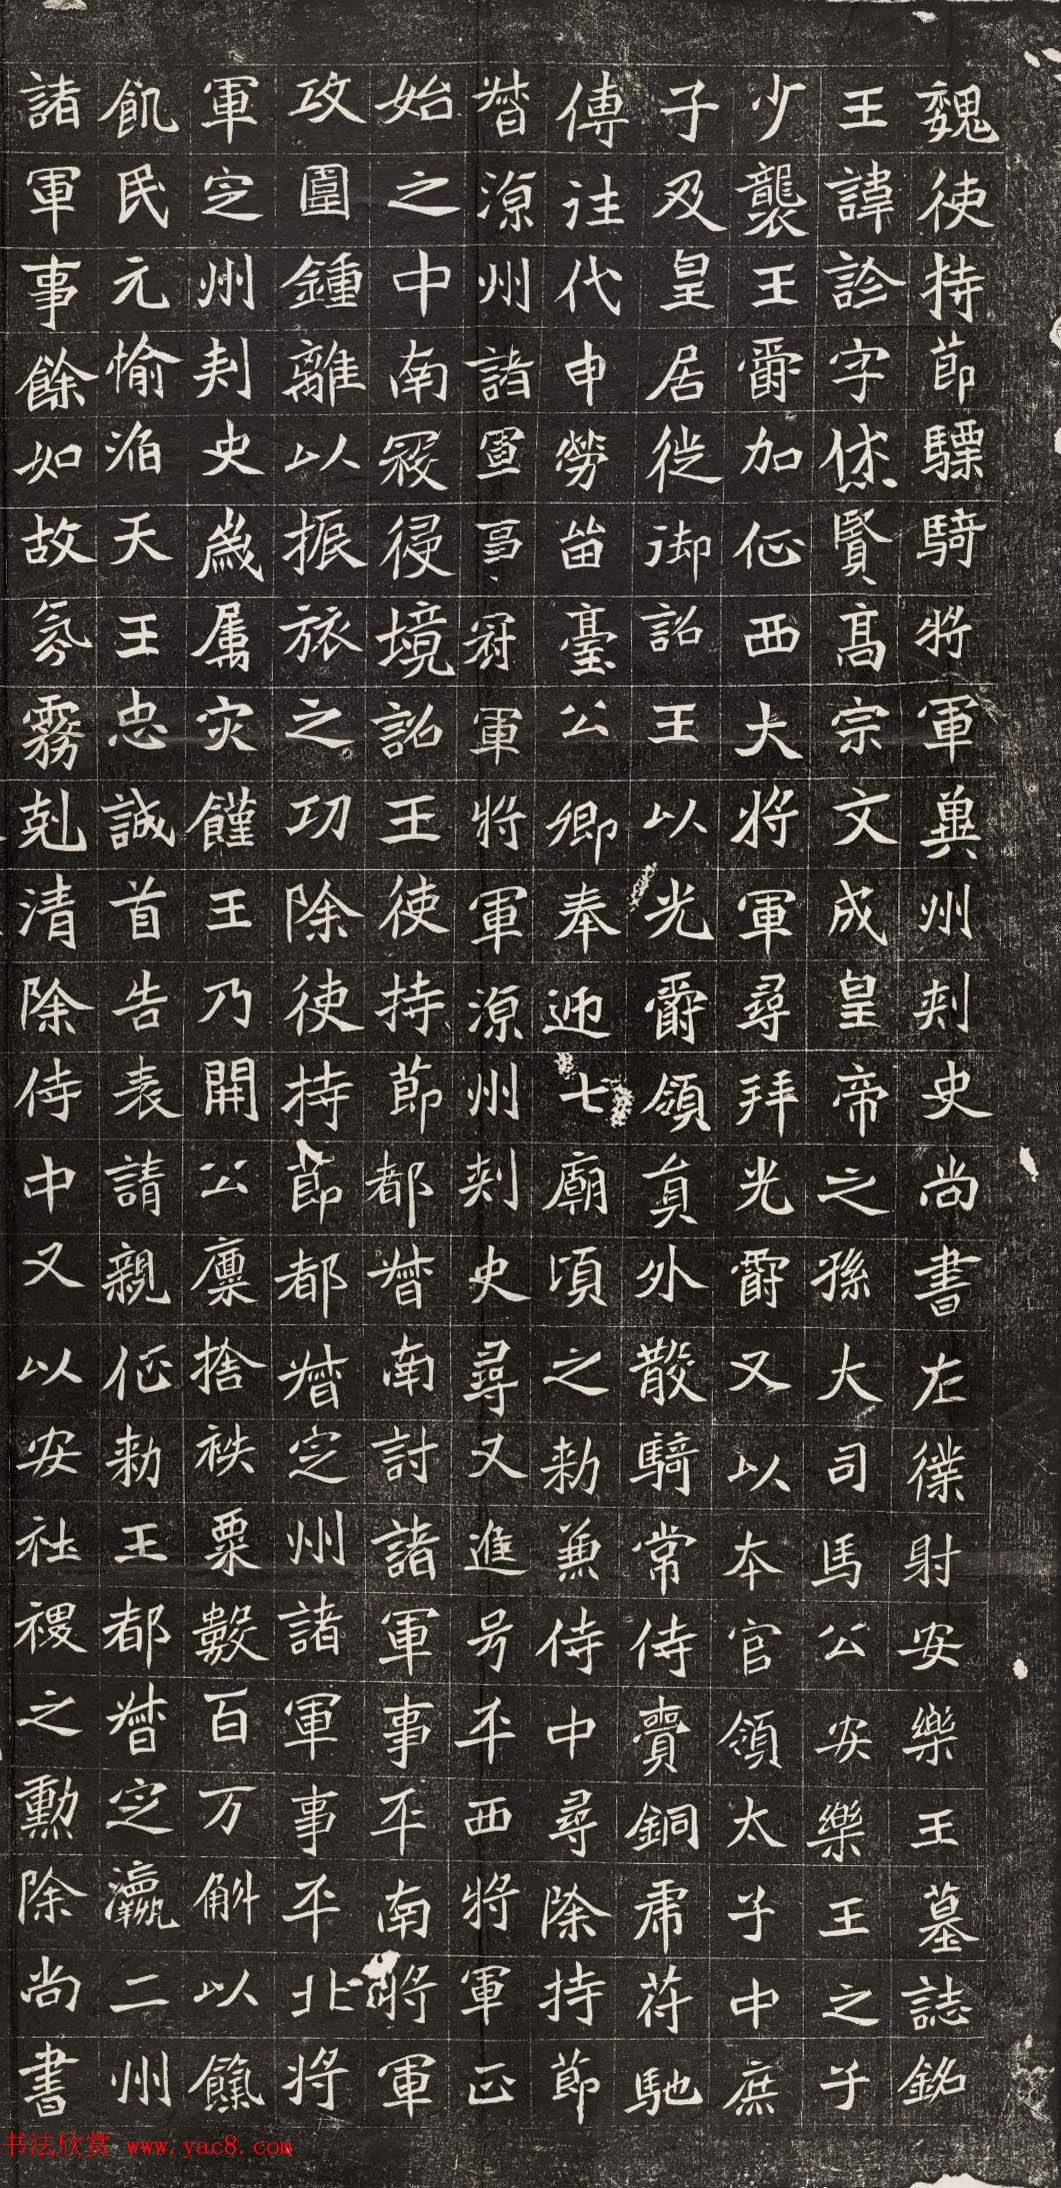 魏使持節驃騎將軍冀州刺史尚書左僕射安樂王墓誌銘
王諱詮字休賢高宗文成皇帝之孫大司馬公安樂王之子
少襲王爵加征西大將軍尋拜光爵又以本官領太子中庶
子及皇居徙御詔王以光爵領員外散騎常侍賷銅虎苻馳
傳注代申勞留臺公卿奉迎七廟頃之敕兼侍中尋除持節
督涼州諸軍事冠軍將軍涼州刺史尋又進号平西將軍正
始之中南寇侵境詔王使持節都督南討諸軍事平南將軍
攻圍鍾離以振旅之功除使持節都督定州諸軍事平北將
軍定州刾史歲属灾饉王乃開公廩捨袟粟數百万斛以餼
飢民元愉滔天王忠誠首告表請親征敕王都督定瀛二州
諸軍事餘如故氛霧剋清除侍中又以安社禝之勳除尚書
书法欣赏 www.yac8.com